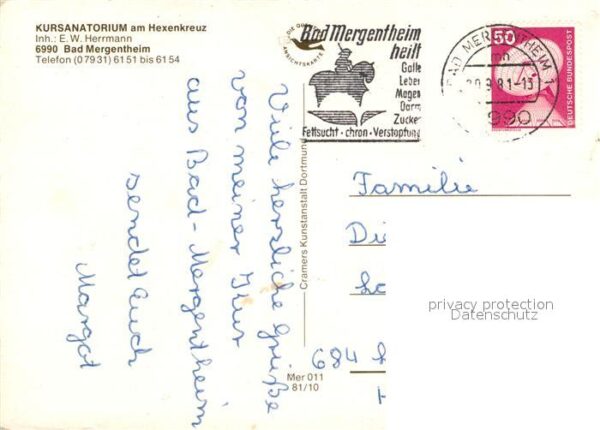 KURSANATORIUM am Hexenkreuz
Inh.: E. W. Herrmann
6990 Bad Mergentheim
Telefon (07931) 6151 bis 6154
Viele herzliche Grüße
von meiner Kur
aus Bad-Mergentheim
sendet Euch
Margot
Cramers Kunstanstalt Dortmund
Mer 011
81/10
DIE GUTE
ANSICHTSKARTE
Bad Mergentheim
heilt
Galle
Leber
Magen
Darm
Zucker
Fettsucht · chron · Verstopfung
BAD MERGENTHEIM 1
mh
9.81-13
6990
50
DEUTSCHE BUNDESPOST
Familie
Di
684
privacy protection
Datenschutz